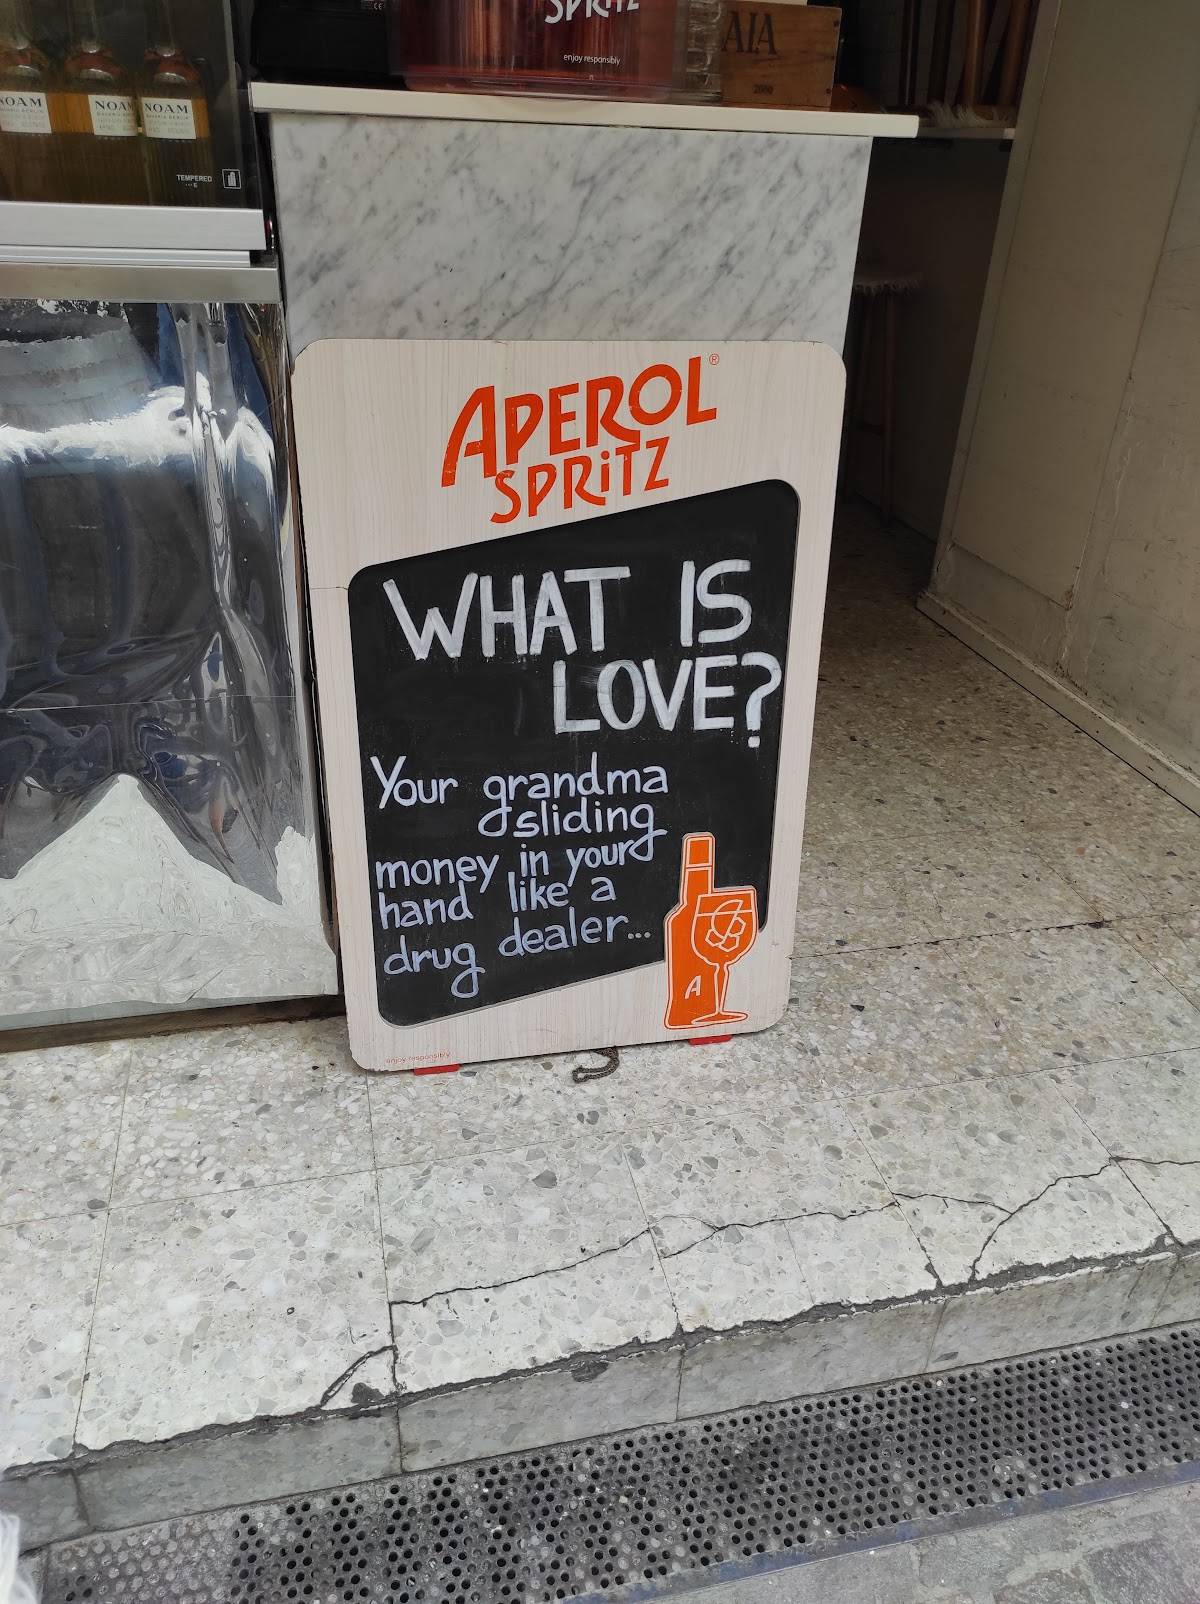 SPRiTZ
enjoy responsibly
AIA
2000
NOAM
NOAM
NOAM
BAVARIA BERLIN
TEMPERED
APEROL®
SPRiTZ
WHAT IS
LOVE?
Your grandma
sliding
money in your
hand like a
drug dealer...
A
enjoy responsibly